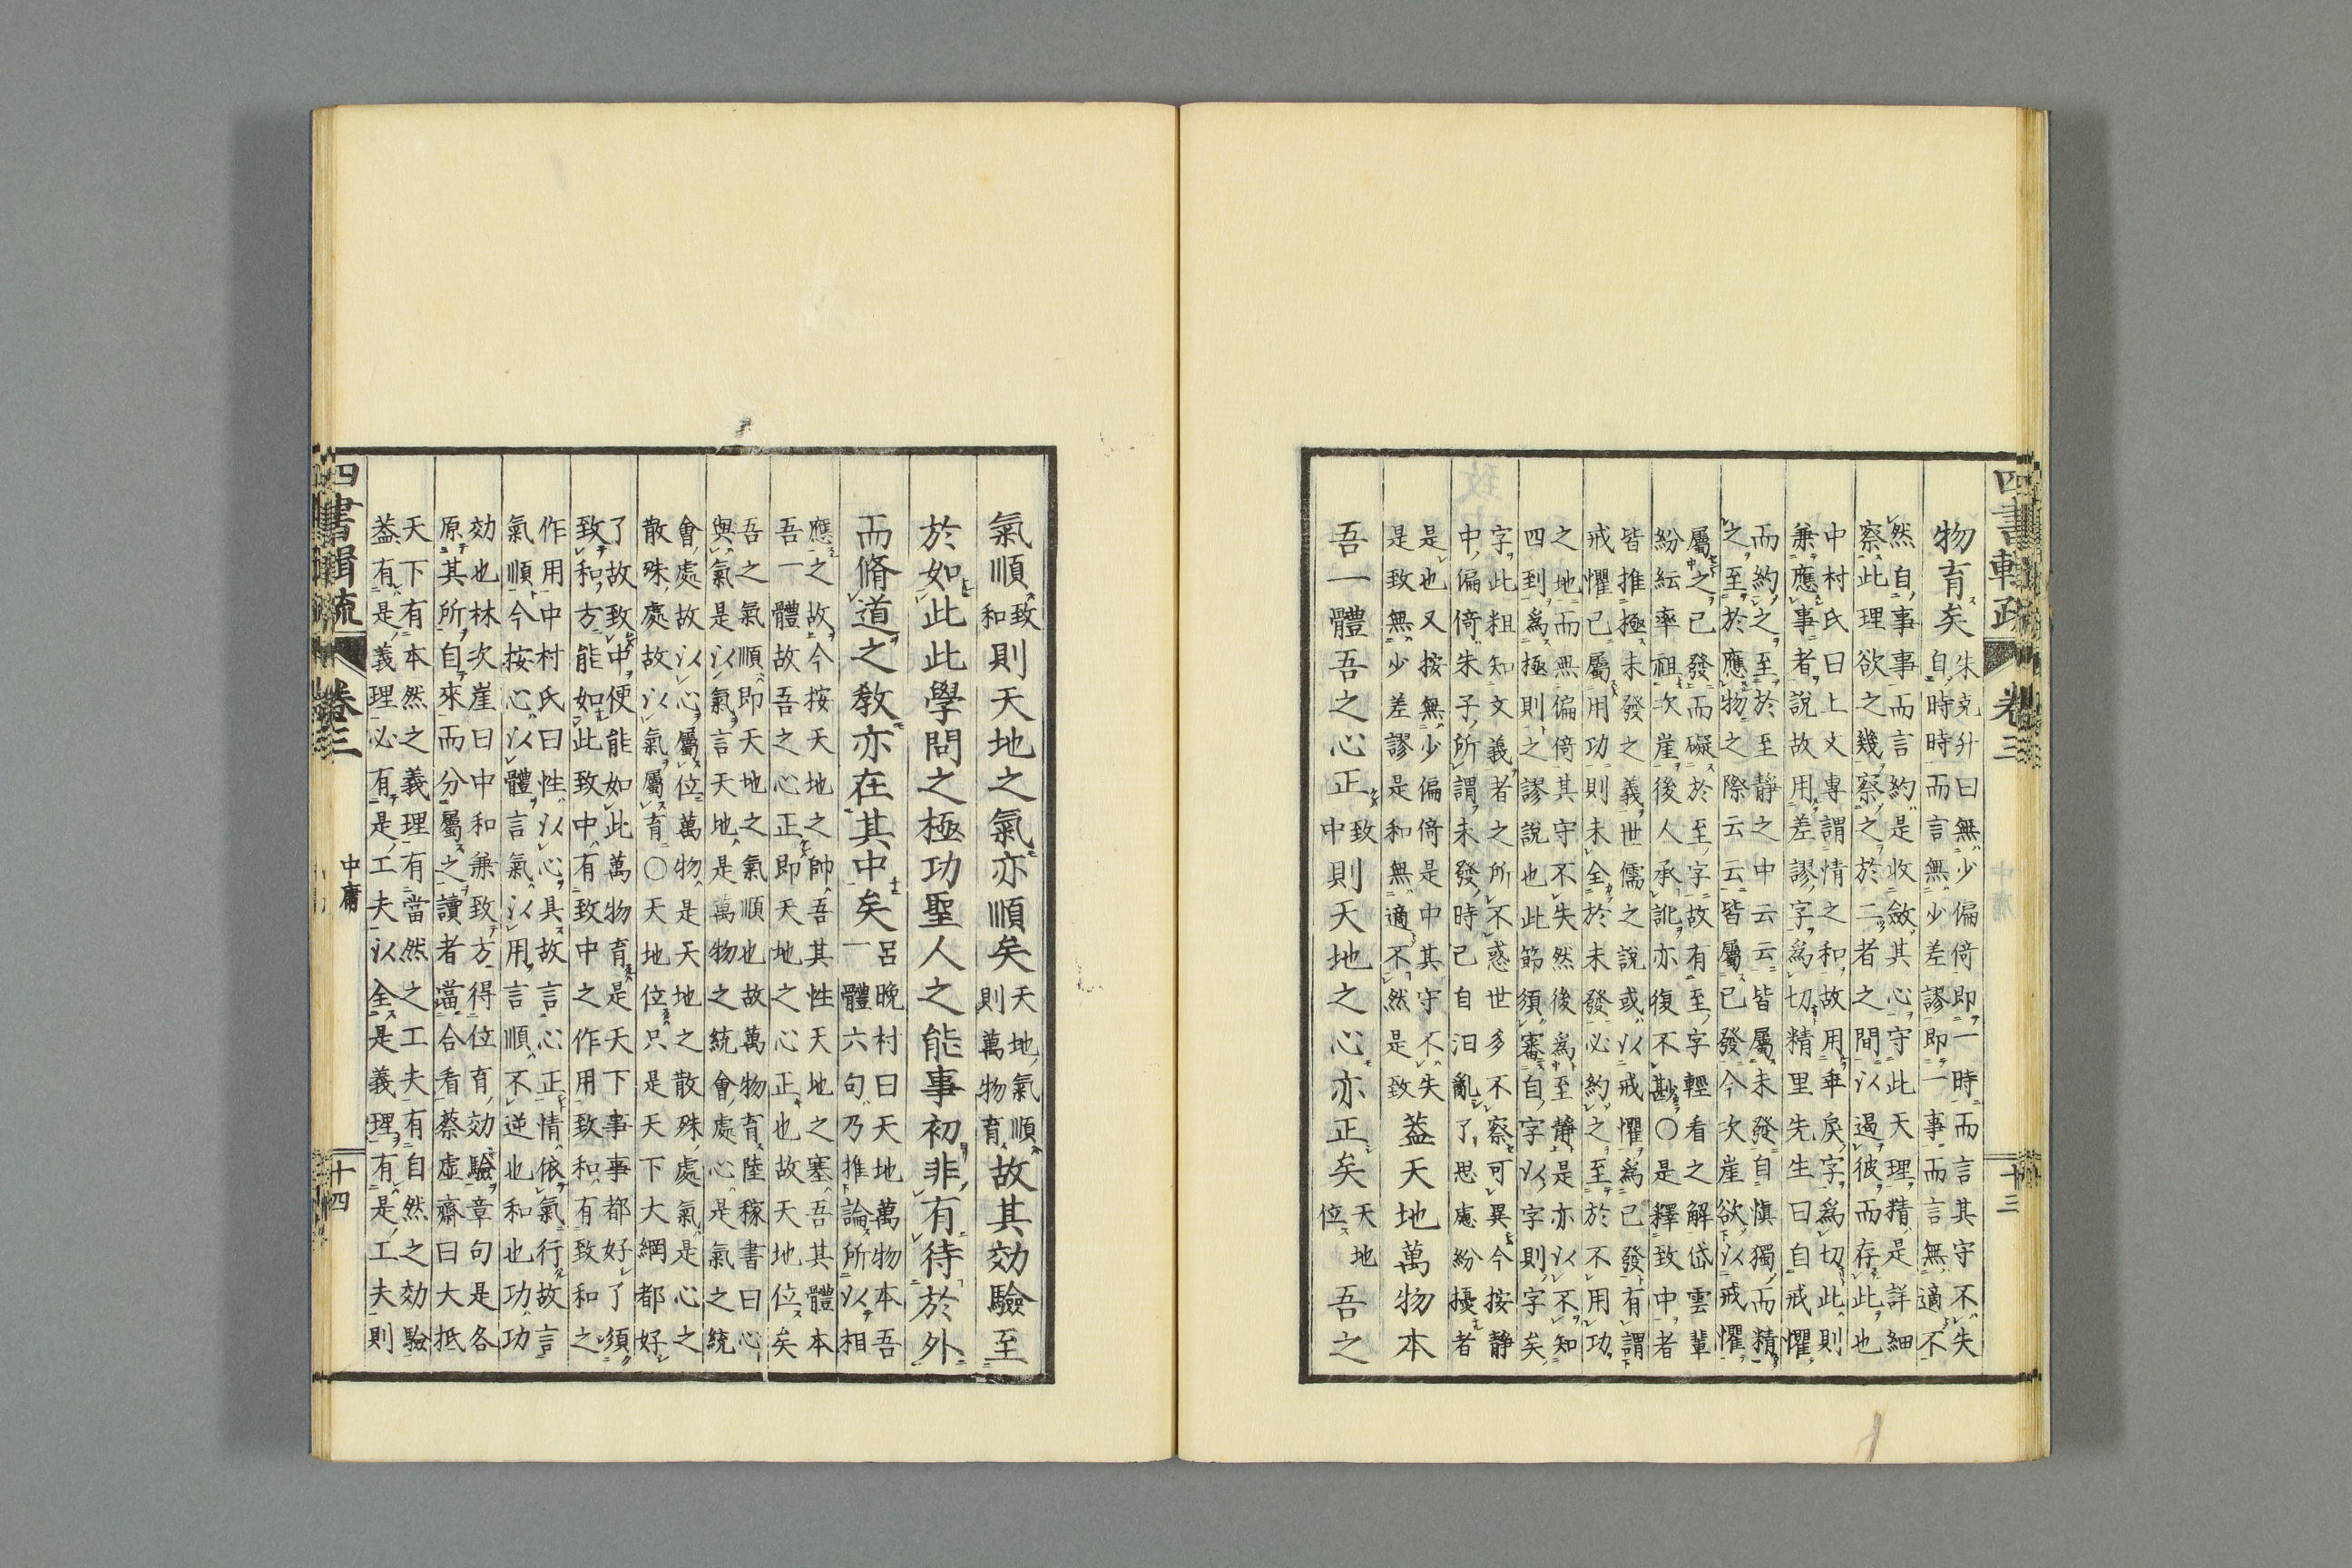 四書輯疏
卷三
十三
物育矣
朱克升曰無少偏倚即一時而言其守不失
自時時而言無少差謬即一事而言無適不
然自事事而言約是收斂其心守此天理精是詳細
察此理欲之幾察之於二者之間以遏彼而存此也
中村氏曰上文專謂情之和故用乖戾字爲切此則
兼應事者說故用差謬字爲切精里先生曰自戒懼
而約之至於至靜之中云云皆屬未發自愼獨而精
之至於應物之際云云皆屬已發今次崖欲以戒懼
屬之已發而礙於至字故有至字輕看之解岱雲輩
紛紜率祖次崖後人承訛亦復不尠〇是釋致中者
皆推極未發之義世儒之說或以戒懼爲已發有謂
戒懼已屬用功則未全於未發必約之至於不用功
之地而無偏倚其守不失然後爲至靜是亦以不知
四到爲極則之謬說也此節須審自字以字則字矣
字此粗知文義者之所不惑世多不察可異今按靜
中偏倚朱子所謂未發時已自汩亂了思慮紛擾者
是也又按無少偏倚是中其守不失
是致無少差謬是和無適不然是致
蓋天地萬物本
吾一體吾之心正
致
中
則天地之心亦正矣
天地
位
吾之
氣順
致
和
則天地之氣亦順矣
天地氣順
則萬物育
故其効驗至
於如此此學問之極功聖人之能事初非有待於外
而脩道之敎亦在其中矣
呂晚村曰天地萬物本吾
一體六句乃推論所以相
應之故今按天地之帥吾其性天地之塞吾其體本
吾一體故吾之心正即天地之心正也故天地位矣
吾之氣順即天地之氣順也故萬物育陸稼書曰心
與氣是以氣言天地是萬物之統會處心是氣之統
會處故以心屬位萬物是天地之散殊處氣是心之
散殊處故以氣屬育〇天地位只是天下大綱都好
了故致中便能如此萬物育是天下事事都好了須
致和方能如此致中有致中之作用致和有致和之
作用中村氏曰性以心具故言心正情依氣行故言
氣順今按心以體言氣以用言順不逆也和也功功
効也林次崖曰中和兼致方得位育効驗章句是各
原其所自來而分屬之讀者當合看蔡虛齋曰大抵
天下有本然之義理有當然之工夫有自然之効驗
蓋有是義理必有是工夫以全是義理有是工夫則
四書輯疏
卷三
中庸
十四